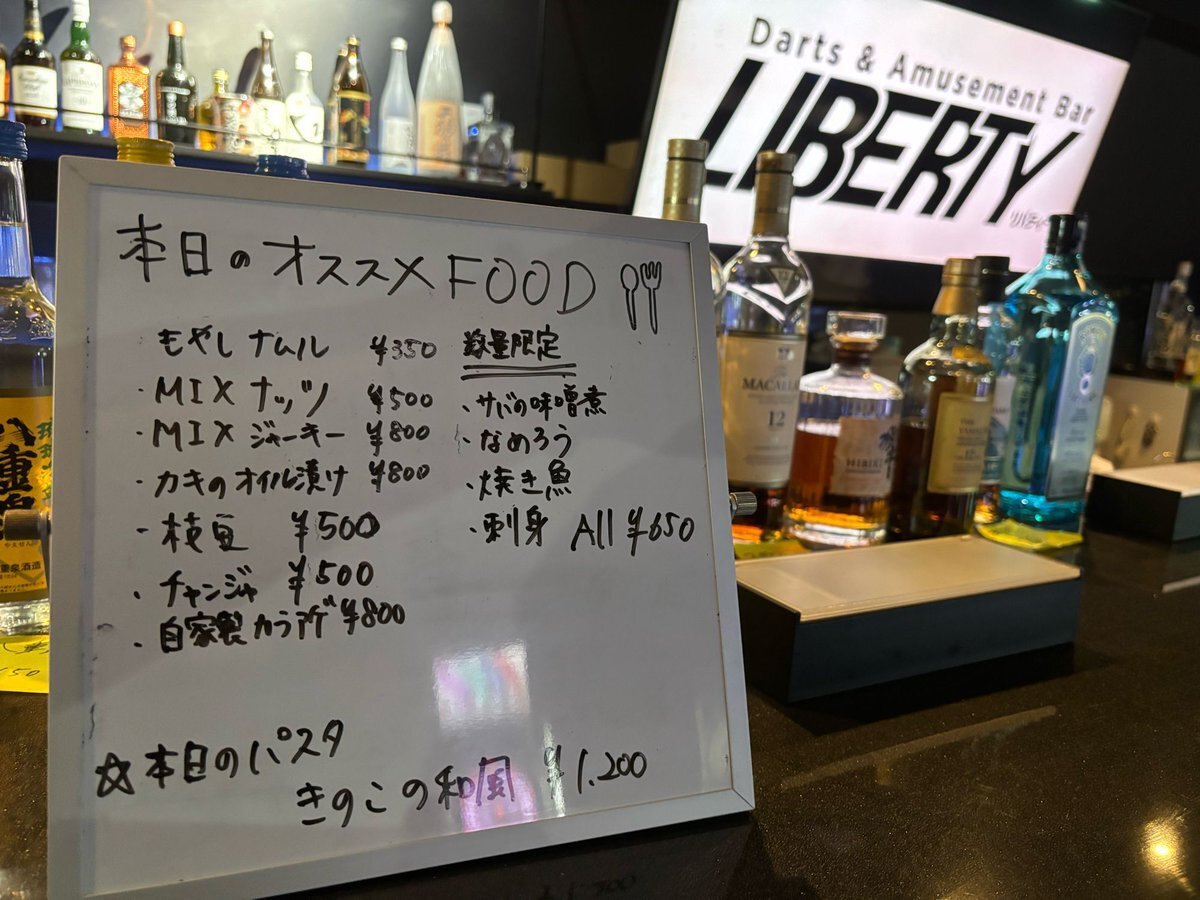 Darts & Amusement Bar
LIBERTY
本日のオススメFOOD
もやしナムル ¥350
・MIXナッツ ¥500
・MIXジャーキー ¥800
カキのオイル漬け ¥800
・枝豆 ¥500
・チャンジャ ¥500
・自家製カラスミ ¥800
数量限定
・サバの味噌煮
・なめろう
・焼き魚
・刺身 All ¥650
☆本日のパスタ
きのこの和風 ¥1.200
MACALLAN
12
HIBIKI